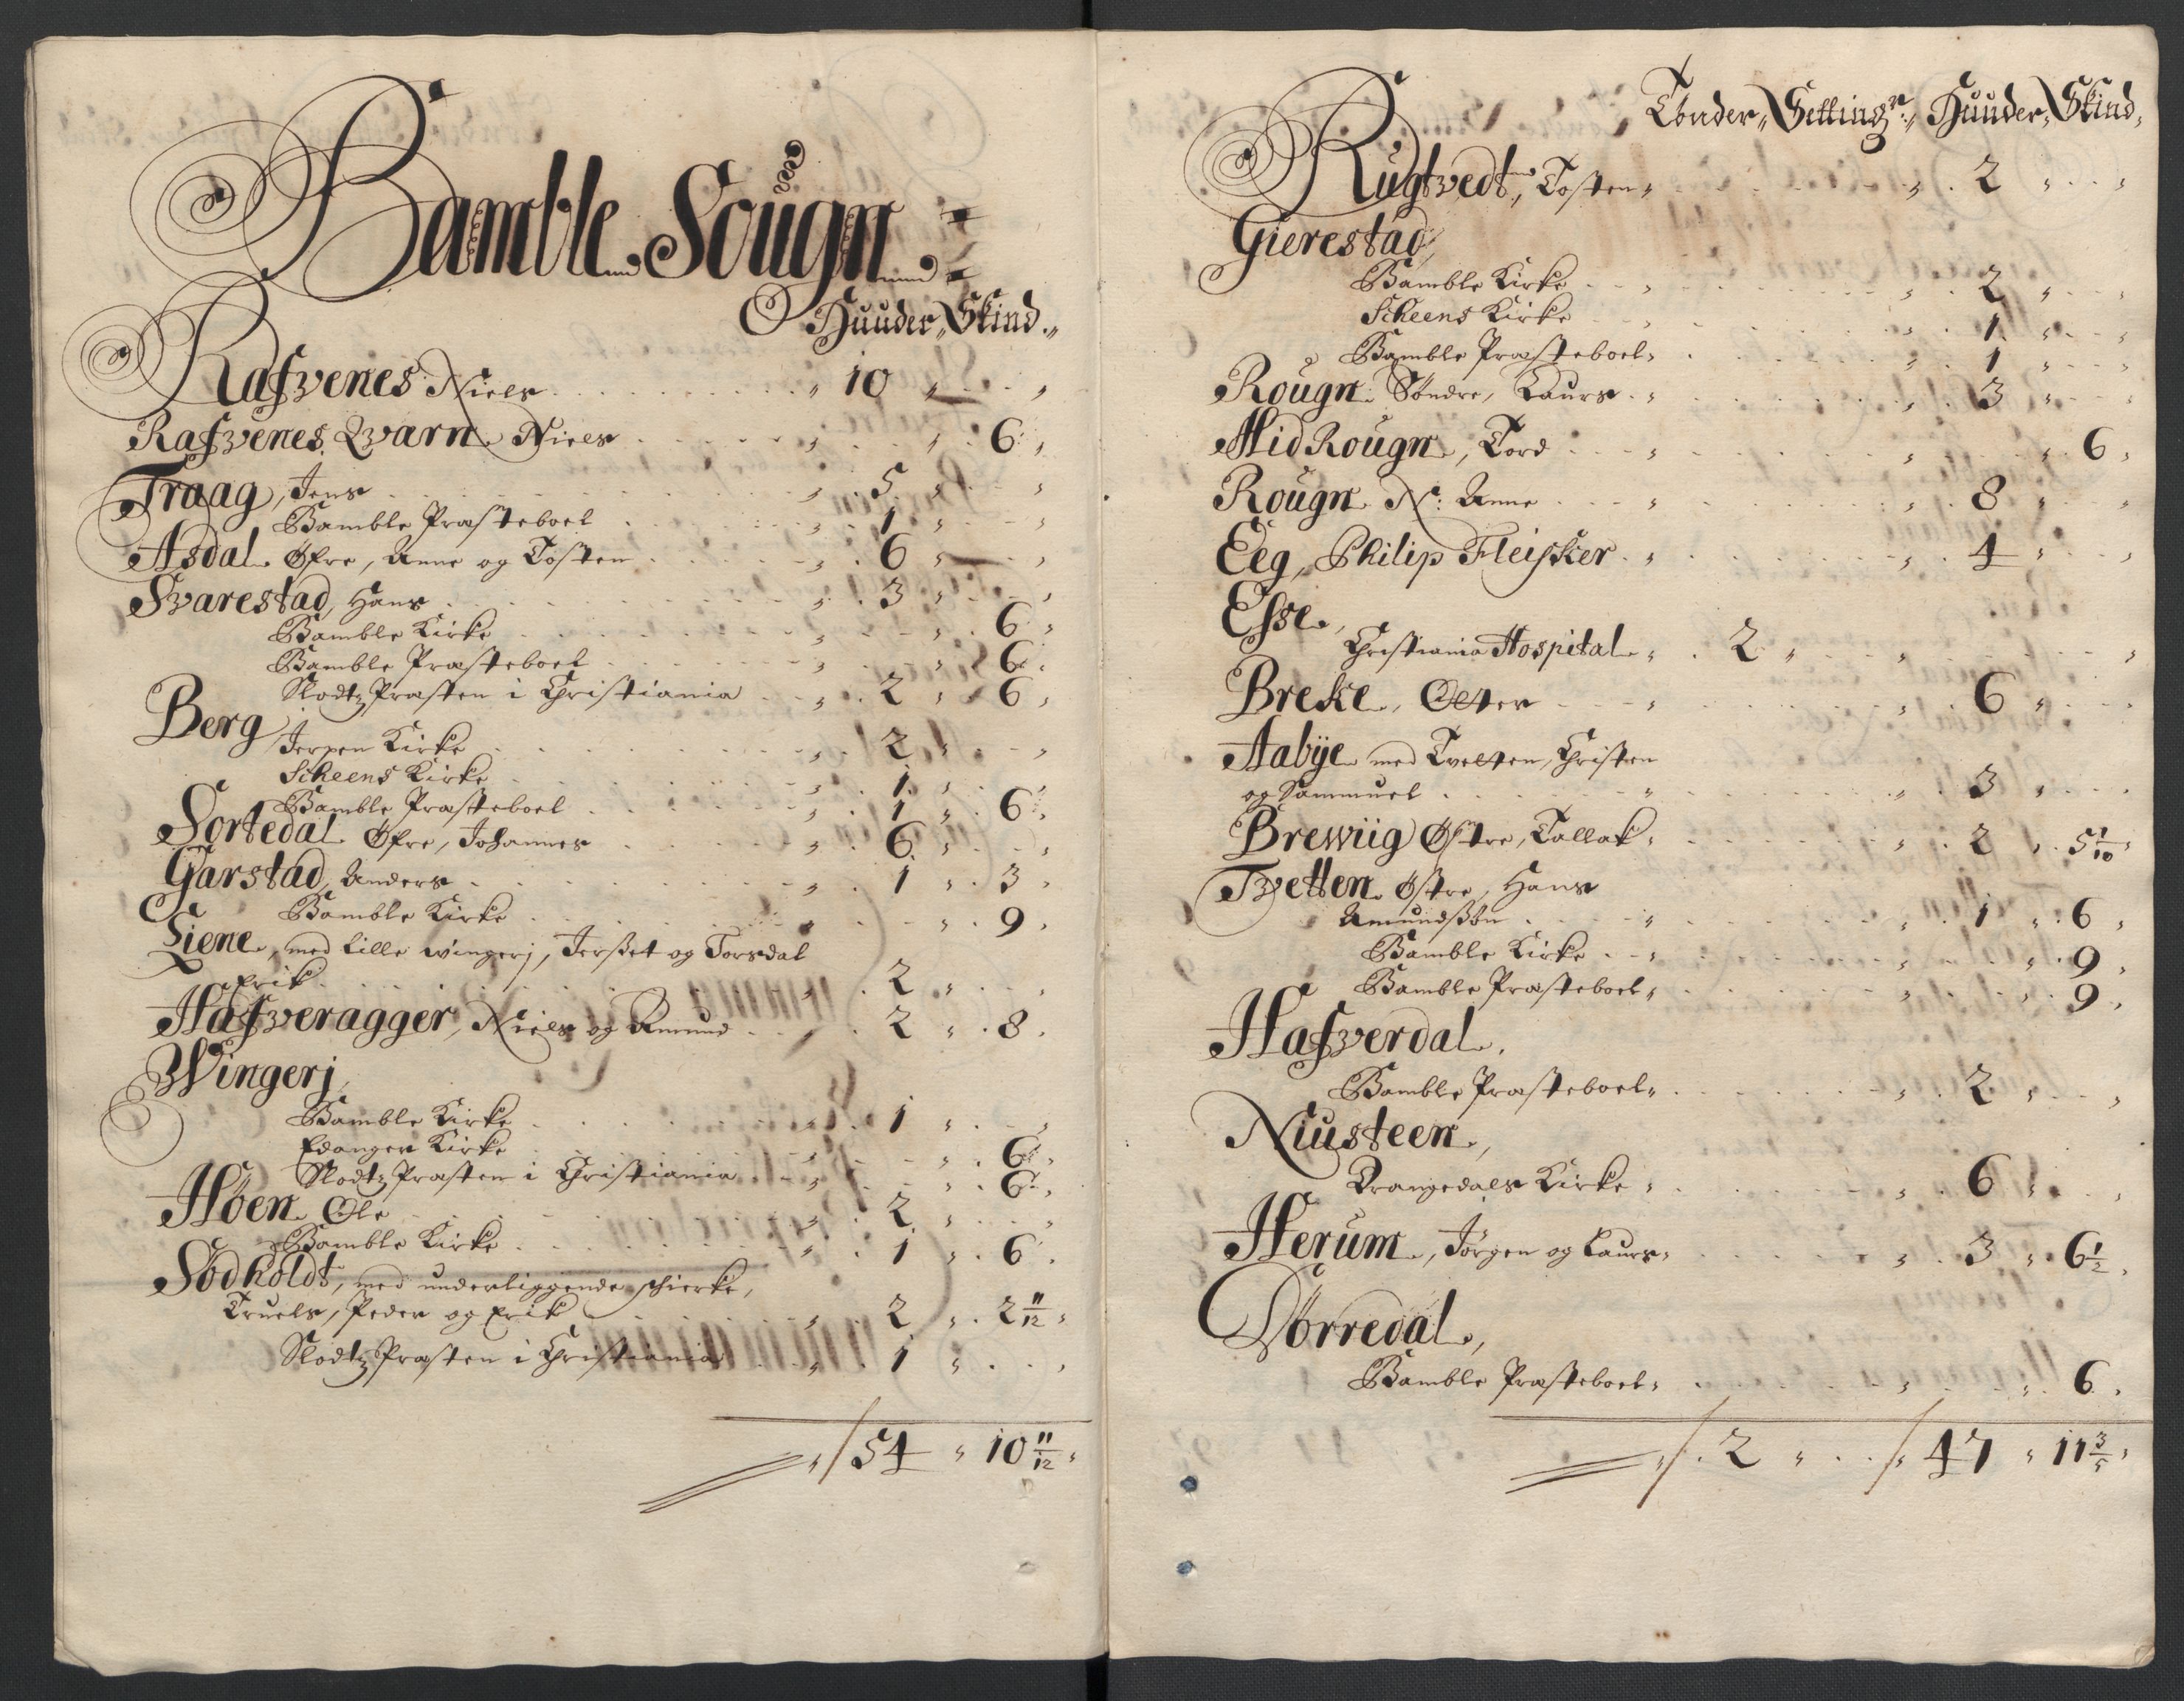 Bamble Sougn
Huuder Skind
Rafvenes Niels 10
Rafvenes Qvarn Niels 6
Traag, Jens 5
Bamble Præsteboel 1
Asdal Øfre, Anne og Tosten 6
Svarestad, Hans 3
Bamble Kirke 6
Bamble Præsteboel 6
Slodtz Præsten i Christiania 2 6
Berg
Jerpen Kirke 2
Scheens Kirke 1
Bamble Præsteboel 1 6
Sortedal Øfre, Johannes 6
Garstad, Anders 1 3
Bamble Kirke 9
Liene, med Lille Wingerj, Jersset og Torsdal
Erik 2
Hafveragger, Niels og Amund 2 8
Wingerj
Bamble Kirke 1
Edanger Kirke 6
Slodtz Præsten i Christiania 6
Høen Ole 2
Bamble Kirke 1 6
Sødholdt, med underliggende schierke,
Truels, Peder og Erik 2 2 11/12
Slodtz Præsten i Christiania 1
54 10 11/12
Tønder Setting Huuder Skind
Rugtvedt, Tosten 2
Gierestad
Bamble Kirke 2
Scheens Kirke 1
Bamble Præsteboel 1
Rougn Søndre, Laurs 3
Mid Rougn, Tord 6
Rougn N: Anne 8
Eeg, Philip Fleisker 4
Esse,
Christiania Hospital 2
Breke, Olter 6
Aabye med Tvetten, Christen
og Sammuel 3
Brewiig Østre, Tallak 2 5 1/10
Tvetten Østre, Hans
Amundssøn 1 6
Bamble Kirke 9
Bamble Præsteboel 9
Hafverdal
Bamble Præsteboel 2
Niusteen,
Drangedals Kirke 6
Herum, Jørgen og Laurs 3 6 1/2
Dørredal,
Bamble Præsteboel 6
2 47 11 3/5